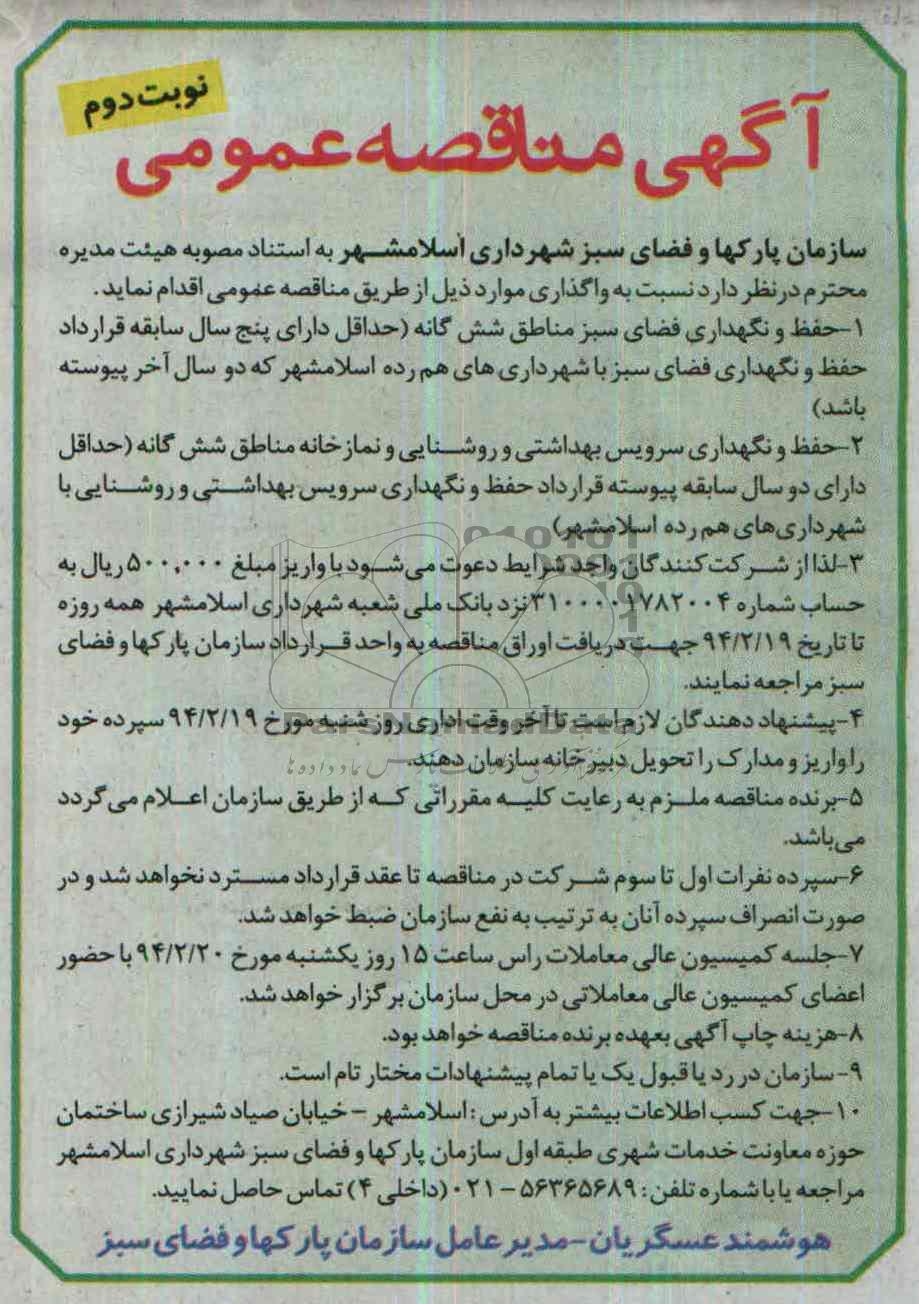 نوبت دوم
آگهی مناقصه عمومی
سازمان پارکها و فضای سبز شهرداری اسلامشهر به استناد مصوبه هیئت مدیره
محترم درنظر دارد نسبت به واگذاری موارد ذیل از طریق مناقصه عمومی اقدام نماید.
۱-حفظ و نگهداری فضای سبز مناطق شش گانه (حداقل دارای پنج سال سابقه قرارداد
حفظ و نگهداری فضای سبز با شهرداری های هم رده اسلامشهر که دو سال آخر پیوسته
باشد)
۲-حفظ و نگهداری سرویس بهداشتی و روشنایی و نمازخانه مناطق شش گانه (حداقل
دارای دو سال سابقه پیوسته قرارداد حفظ و نگهداری سرویس بهداشتی و روشنایی با
شهرداری‌های هم رده اسلامشهر)
۳-لذا از شرکت‌کنندگان واجد شرایط دعوت می‌شود با واریز مبلغ ۵۰۰,۰۰۰ ریال به
حساب شماره ۳۱۰۰۰۰۱۷۸۲۰۰۴ نزد بانک ملی شعبه شهرداری اسلامشهر همه روزه
تا تاریخ ۹۴/۲/۱۹ جهت دریافت اوراق مناقصه به واحد قرارداد سازمان پارکها و فضای
سبز مراجعه نمایند.
۴-پیشنهاد دهندگان لازم است تا آخر وقت اداری روز شنبه مورخ ۹۴/۲/۱۹ سپرده خود
را واریز و مدارک را تحویل دبیرخانه سازمان دهند.
ParsNamadData
۵-برنده مناقصه ملزم به رعایت کلیه مقرراتی که از طریق سازمان اعلام می گردد
می‌باشد.
۶-سپرده نفرات اول تا سوم شرکت در مناقصه تا عقد قرارداد مسترد نخواهد شد و در
صورت انصراف سپرده آنان به ترتیب به نفع سازمان ضبط خواهد شد.
۷-جلسه کمیسیون عالی معاملات راس ساعت ۱۵ روز یکشنبه مورخ ۹۴/۲/۲۰ با حضور
اعضای کمیسیون عالی معاملاتی در محل سازمان برگزار خواهد شد.
۸-هزینه چاپ آگهی بعهده برنده مناقصه خواهد بود.
۹-سازمان در رد یا قبول یک یا تمام پیشنهادات مختار تام است.
۱۰-جهت کسب اطلاعات بیشتر به آدرس: اسلامشهر - خیابان صیاد شیرازی ساختمان
حوزه معاونت خدمات شهری طبقه اول سازمان پارکها و فضای سبز شهرداری اسلامشهر
مراجعه یا با شماره تلفن: ۵۶۳۶۵۶۸۹-۰۲۱ (داخلی ۴) تماس حاصل نمایید.
هوشمند عسگریان-مدیر عامل سازمان پارکها و فضای سبز